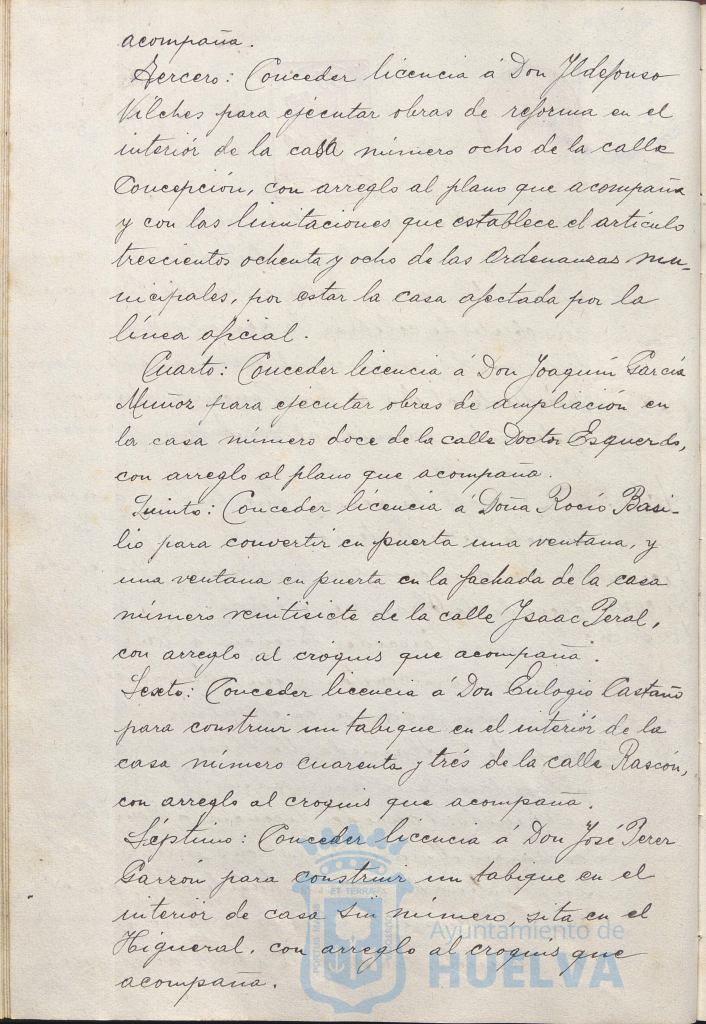 acompaña.
Tercero: Conceder licencia á Don Yldefonso
Vilches para ejecutar obras de reforma en el
interior de la casa número ocho de la calle
Concepción, con arreglo al plano que acompaña
y con las limitaciones que establece el artículo
trescientos ochenta y ocho de las Ordenanzas mu-
nicipales, por estar la casa afectada por la
línea oficial.
Cuarto: Conceder licencia á Don Joaquín García
Muñoz para ejecutar obras de ampliación en
la casa número doce de la calle Doctor Esquerdo,
con arreglo al plano que acompaña.
Quinto: Conceder licencia á Doña Rocío Basi-
lio para convertir en puerta una ventana, y
una ventana en puerta en la fachada de la casa
número veintisiete de la calle Ysaac Peral,
con arreglo al cróquis que acompaña.
Sexto: Conceder licencia á Don Eulogio Castaño
para construir un tabique en el interior de la
casa número cuarenta y trés de la calle Rascón,
con arreglo al croquis que acompaña.
Séptimo: Conceder licencia á Don José Perez
Garzón para construir un tabique en el
interior de casa sin número, sita en el
Higueral, con arreglo al croquis que
acompaña.
Ayuntamiento de
HUELVA